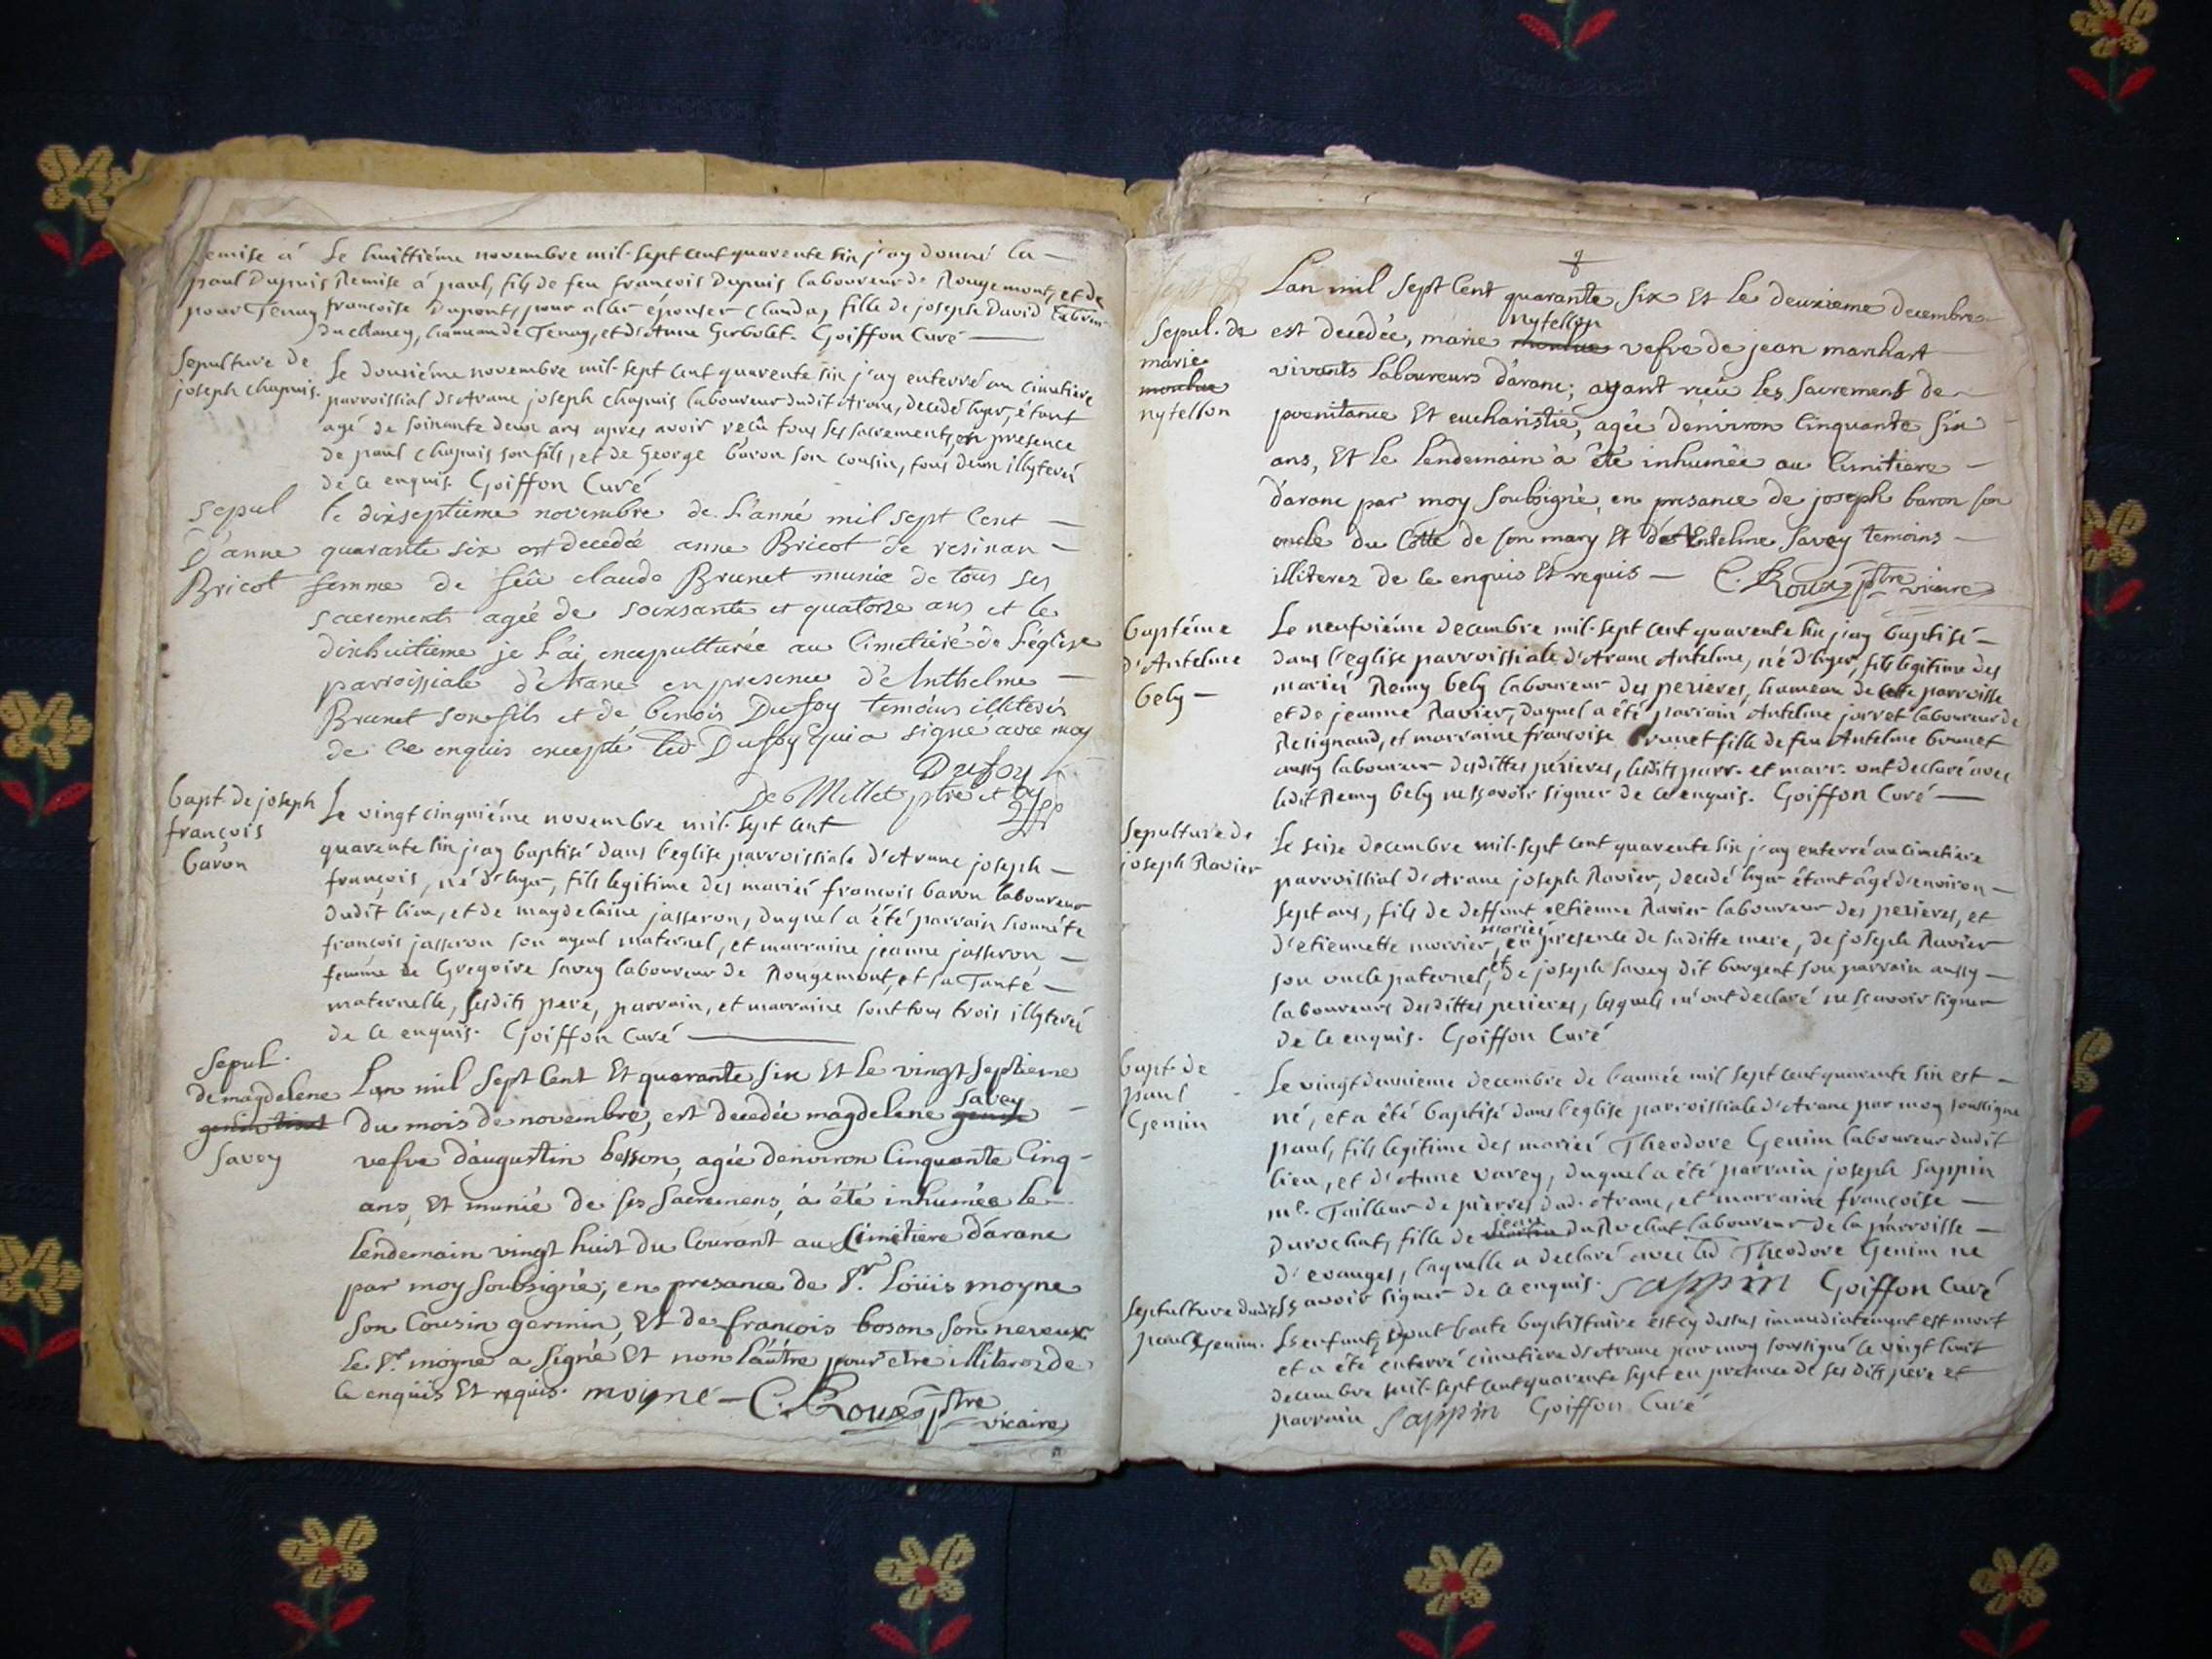 Remise à
paul Dupuis
pour Tenay
Le huittiéme novembre mil-sept cent quarente six j'ay donné la
Remise à paul, fils de feu françois Dupuis laboureur de Rougemont, et de
françoise Dupont, pour aller épouser Clauda, fille de joseph David labour
du chaney, hameau de Tenay, et d'Anne Gerbolet. Goiffon Curé
Sepulture de
joseph chapuis.
Le dousiéme novembre mil-sept cent quarente six j'ay enterré au cimetiere
parroissial d'Arane joseph chapuis laboureur dudit Aranc, decedé hyer, étant
agé de soixante deux ans apres avoir reçû tous ses sacrements, en presence
de paul chapuis son fils, et de George baron son cousin, tous deux illyterés
de ce enquis. Goiffon Curé
Sepul
D'anne
Bricot
le dixseptieme novembre de L'anné mil sept Cent
quarante six est decedée anne Bricot de resinan
femme de feû claude Brunet munie de tous ses
sacrements agée de soixsante et quatorze ans et le
dixhuitieme je L'ai ensepulturée au Cimetiere de L'eglise
parroissiale d'Arane en presence d'Anthelme
Brunet son fils et de benois Dufoy temoins illiterés
de ce enquis excepté led Dufoy qui a signé avec moy
Dufoy
De Millet ptre et
Bapt. de joseph
françois
baron
Le vingt cinquiéme novembre mil-sept cent
quarente six j'ay baptisé dans l'eglise parroissiale d'Arane joseph
françois, né d'hyer, fils legitime des mariés françois baron laboureur
dudit lieu, et de magdelaine jasseron, duquel a été parrain honnéte
françois jasseron son ayeul maternel, et marraine jeanne jasseron
femme de Gregoire Savey laboureur de Rougemont, et sa Tante
maternelle, lesdits pere, parrain, et marraine sont tous trois illyterés
de ce enquis. Goiffon Curé
Sepul.
de magdelene
Savey
Lan mil Sept Cent Et quarante six Et Le vingt Septieme
Savey
du mois de novembre, est decedée magdelene
vefve d'augustin besson, agée denviron Cinquante Cinq
ans, Et munie de ses Sacremens, à été inhumée le
lendemain vingt huit du Courant au Cimetiere d'arane
par moy Soubsigné, en presance de Sr. Loüis moyne
Son Cousin germin, Et de françois boson Son neveux
Le Sr. moyne a Signé Et non l'autre pour etre illiteréz de
Ce enqüis Et reqüis. moyne C. Roux ptre
vicaire
Sepul. de
marie
nytellon
Lan mil Sept Cent quarante Six Et Le deuxieme decembre
nytellon
est decedée, marie vefve de jean marchart
vivants Laboureurs d'aranc; ayant reçu les Sacrement de
poenitance Et eucharistie, agée d'environ Cinquante Six
ans, Et le Lendemain à été inhumée au Cimitiere
d'aranc par moy Soubsigné, en presance de joseph baron Son
oncle du Cotté de son mary Et d'Antelme Savey temoins
illiterez de Ce enquis Et requis C. Roux ptre vicaire
Baptéme
d'Antelme
bely
Le neufviéme decembre mil-sept cent quarente six j'ay baptisé
dans l'eglise parroissiale d'Aranc Antelme, né d'hyer, fils legitime des
mariés Remy bely laboureur des perieres, hameau de cette parroisse
et de jeanne Ravier, duquel a été parrain Antelme jorret laboureur de
Resignand, et marraine françoise brunet fille de feu Antelme brunet
aussy laboureur desdittes perieres, lesdits parr. et marr. ont declaré avec
ledit Remy bely ne sçavoir signer de ce enquis. Goiffon Curé
Sepulture de
joseph Ravier
Le seize decembre mil-sept cent quarente six j'ay enterré au cimetiere
parroissial d'Aranc joseph Ravier, decedé hyer étant âgé d'environ
sept ans, fils de deffunt etienne Ravier laboureur des perieres, et
mariés
d'etiennette morrier, en presence de saditte mere, de joseph Ravier
son oncle paternel, et de joseph Savey dit borgent son parrain aussy
laboureurs desdittes perieres, lesquels m'ont declaré ne sçavoir signer
de ce enquis. Goiffon Curé
Bapt. de
paul
Genin
Le vingt deuxieme decembre de l'année mil sept cent quarente six est
né, et a été baptisé dans l'eglise parroissiale d'Aranc par moy soussigné
paul, fils legitime des mariés Theodore Genin laboureur dudit
lieu, et d'Anne Varey, duquel a été parrain joseph Sappin
me. Tailleur de pierres dud. Aranc, et marraine françoise
jean
Durochat, fille de du Rochat laboureur de la parroisse
d'evanges, laquelle a declaré avec led Theodore Genin ne
sçavoir signer de ce enquis. Sappin Goiffon Curé
Sepulture dudit
paul Genin.
L'enfant, dont l'acte baptistaire est cy dessus immediatement est mort
et a été enterré cimetiere d'Aranc par moy soussigné le vingt huit
decembre mil-sept cent quarente sept en presence de ses dits pere et
parrain Sappin Goiffon Curé